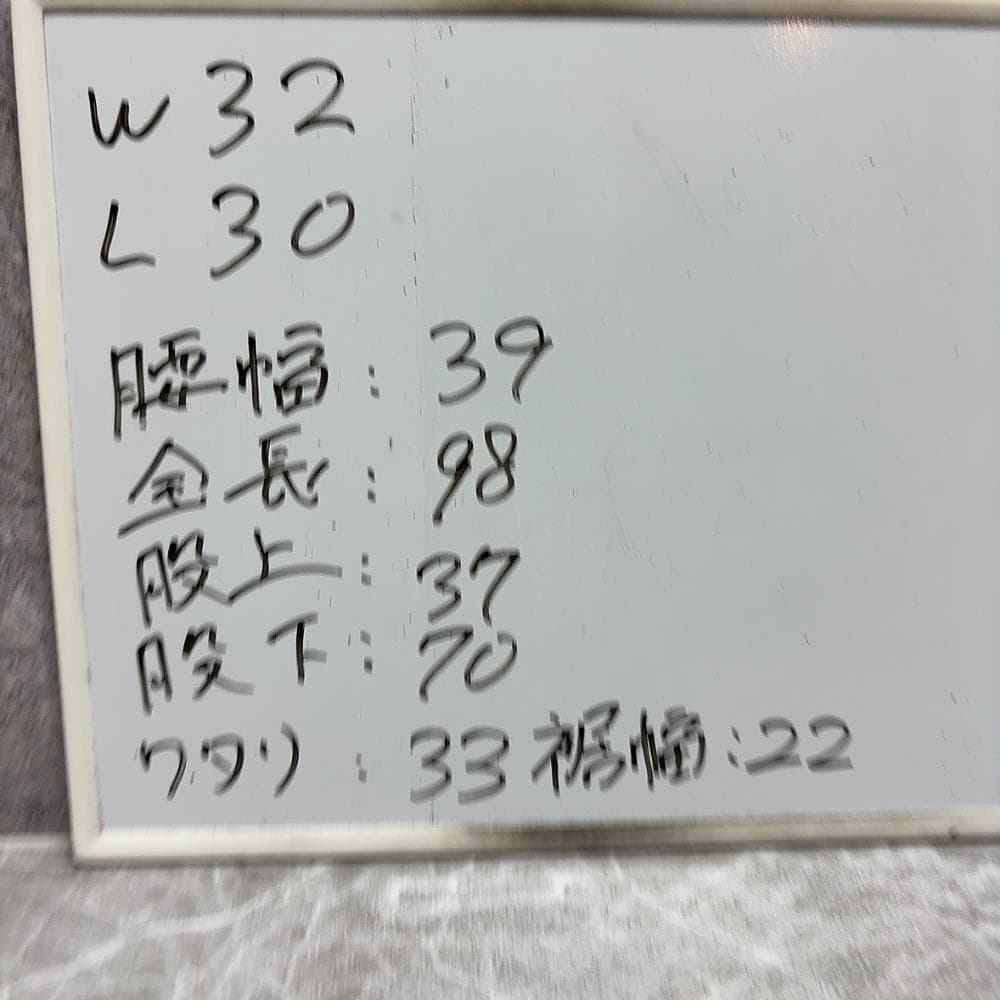 W 32
L 30
腰幅: 39
全長: 98
股上: 37
股下: 70
ワタリ: 33 裾幅:22